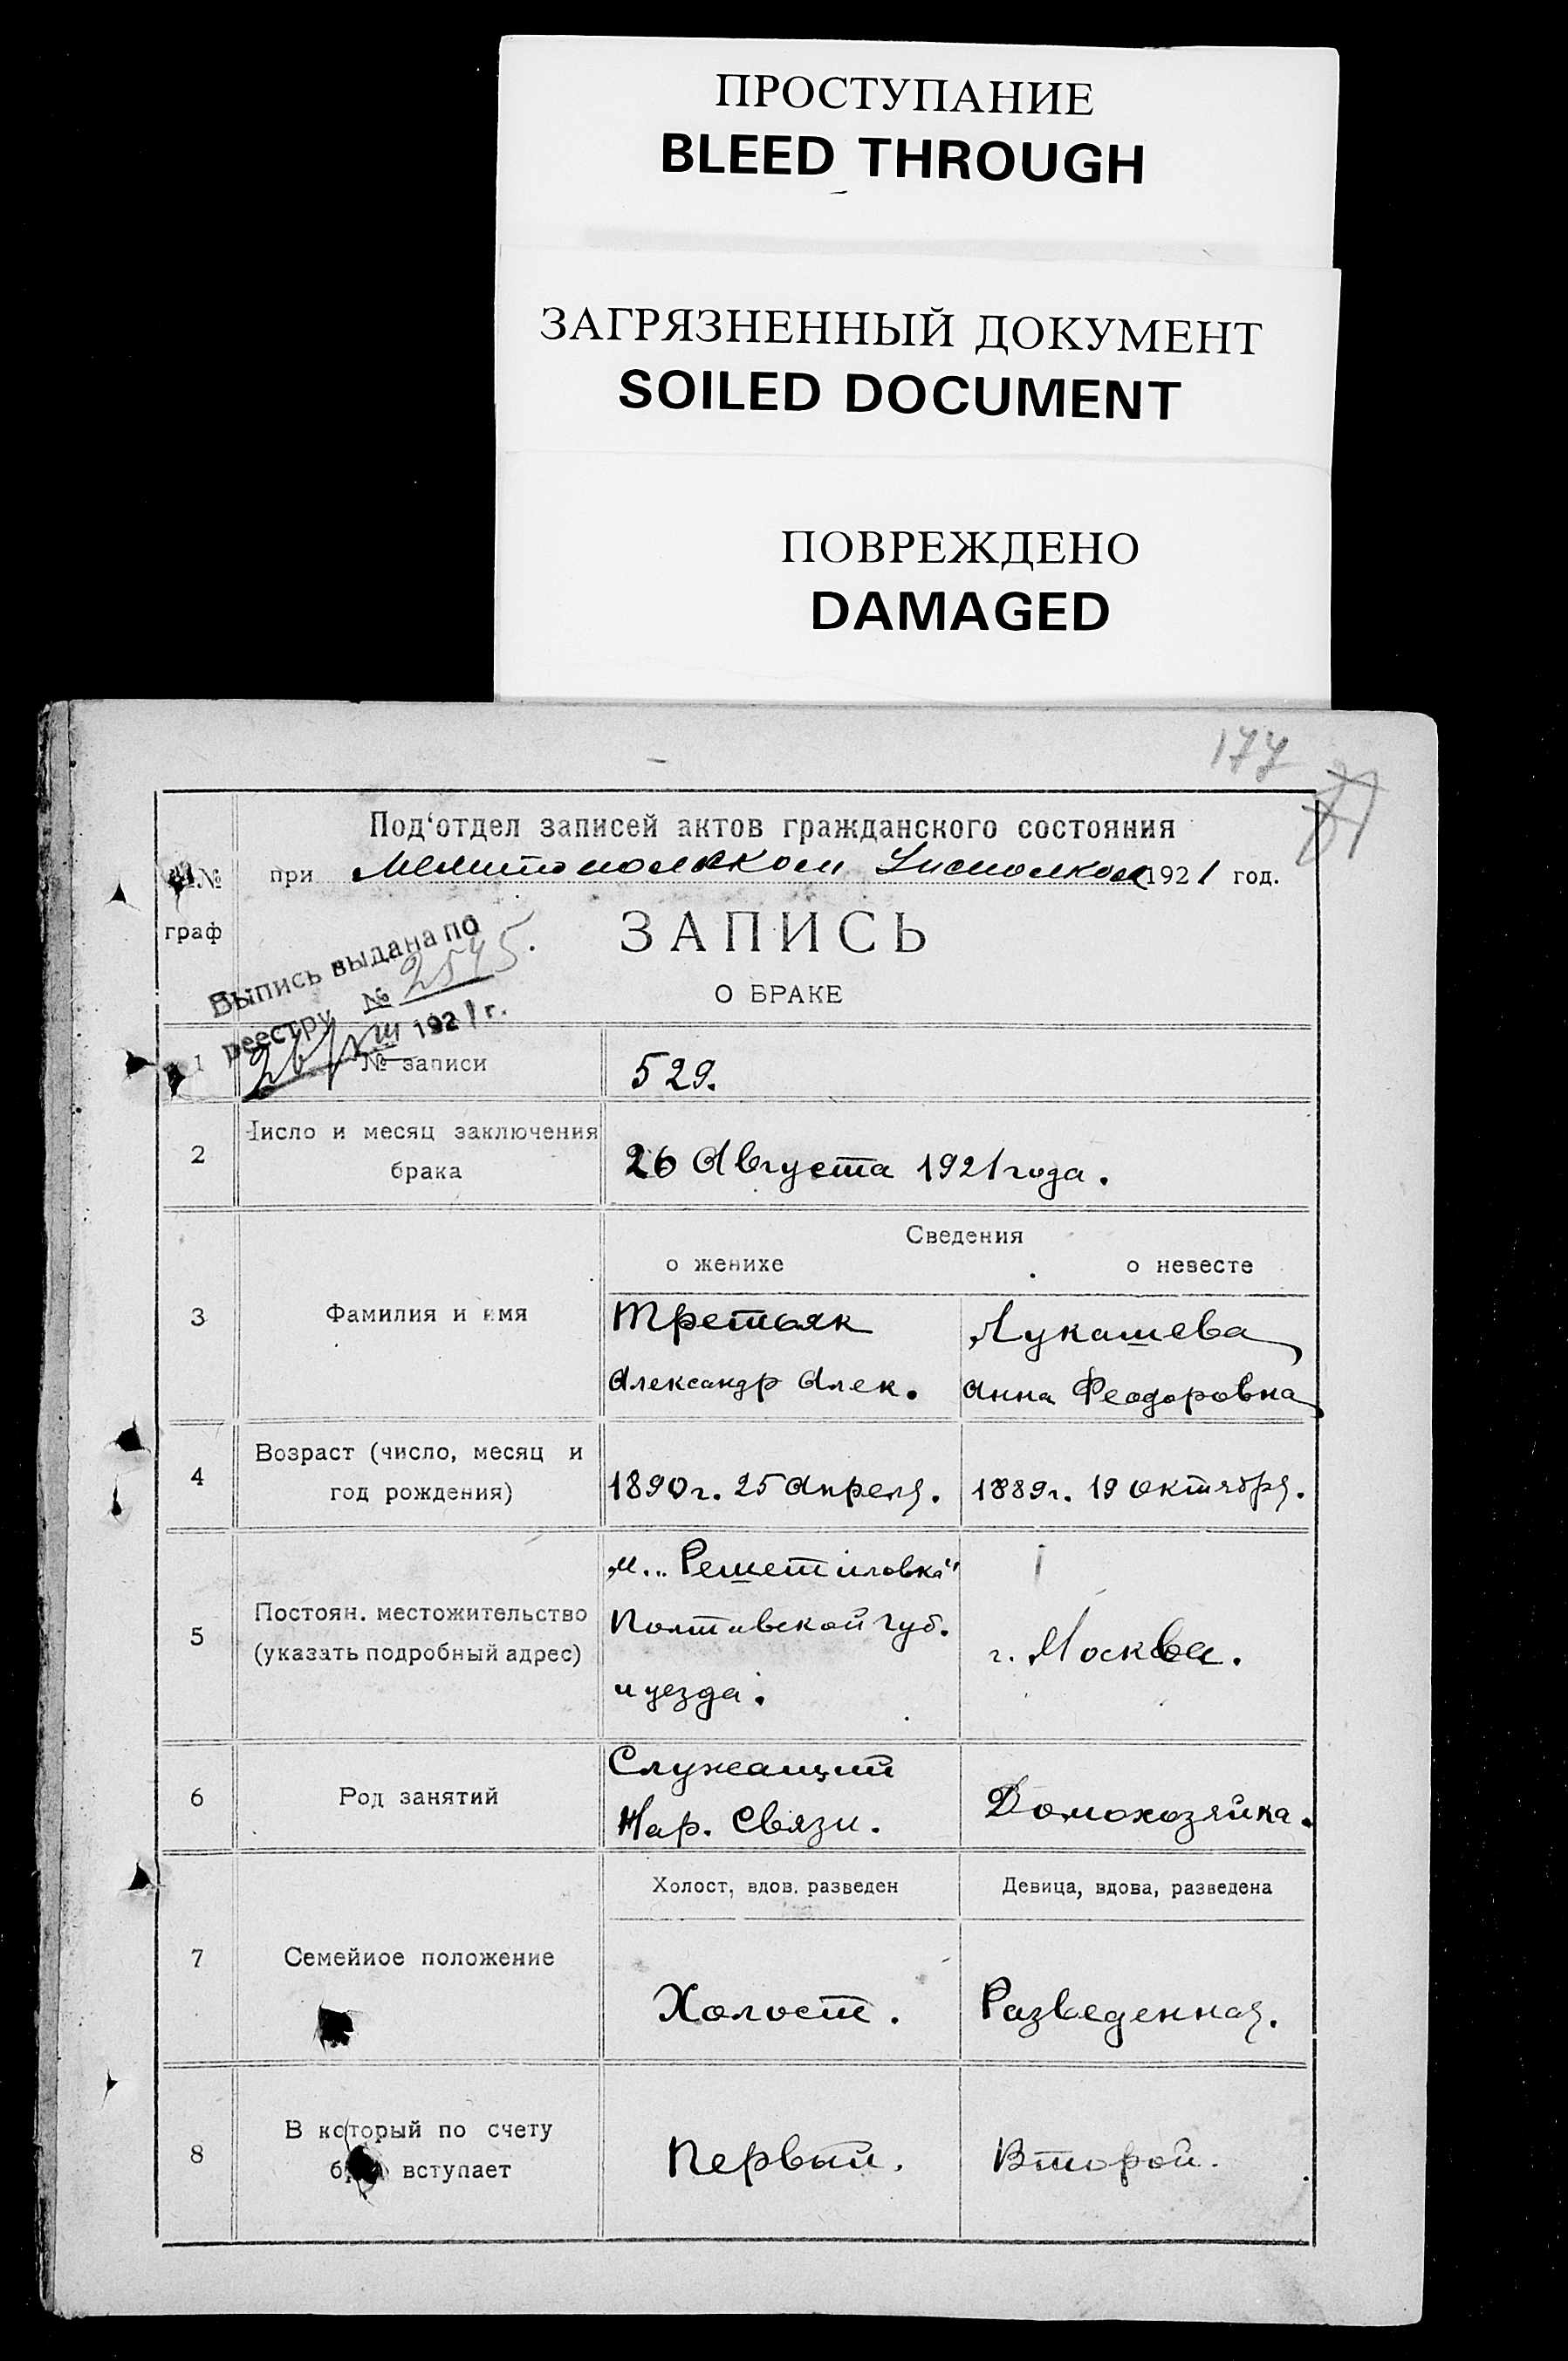 ПРОСТУПАНИЕ
BLEED THROUGH
ЗАГРЯЗНЕННЫЙ ДОКУМЕНТ
SOILED DOCUMENT
ПОВРЕЖДЕНО
DAMAGED
177
Под‘отдел записей актов гражданского состояния
№№
граф
при Мелитопольском Исполкоме 1921 год.
ЗАПИСЬ
О БРАКЕ
Выпись выдана по
реестру № 2545.
26/VIII 1921 г.
1
№ записи
529.
2
Число и месяц заключения
брака
26 Августа 1921 года.
Сведения
о женихе
о невесте
3
Фамилия и имя
Третьяк
Александр Алек.
Лукашева
Анна Феодоровна
4
Возраст (число, месяц и
год рождения)
1890 г. 25 Апреля.
1889 г. 19 Октября.
5
Постоян. местожительство
(указать подробный адрес)
м. „Решетиловка"
Полтавской Губ.
и уезда.
г. Москва.
6
Род занятий
Служащий
Нар. Связи.
Домохозяйка.
7
Семейное положение
Холост, вдов. разведен
Девица, вдова, разведена
Холост.
Разведенная.
8
В который по счету
брак вступает
Первый.
Второй.